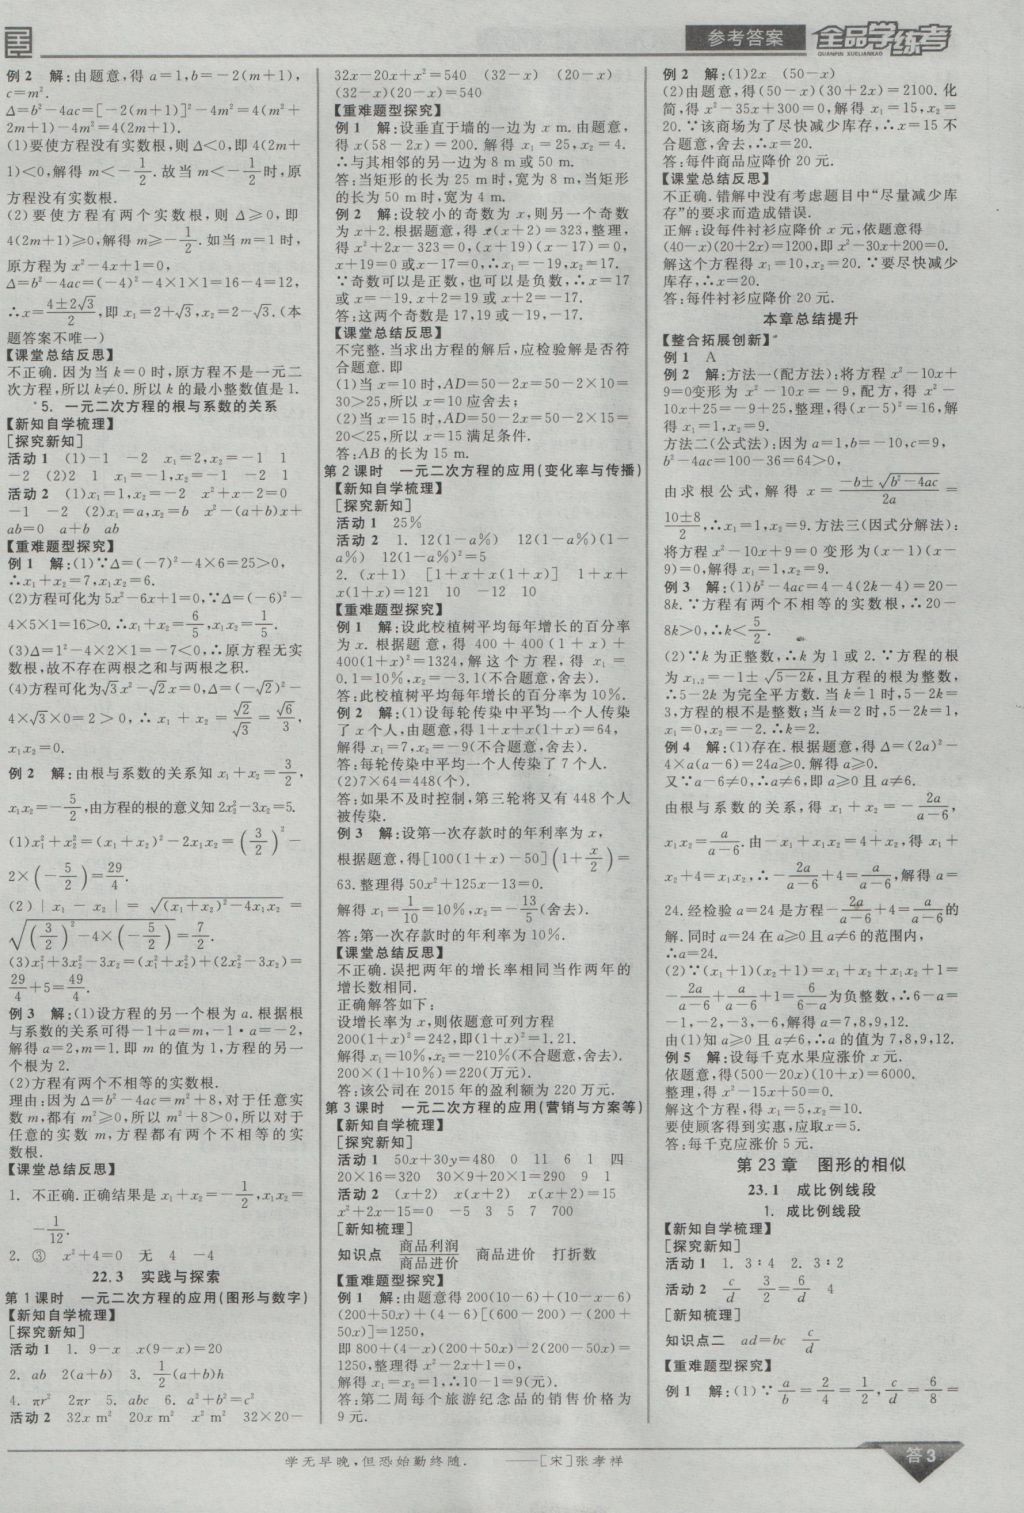 参考答案
全品学练考
QUANPIN XUELIANKAO
例2 解:由题意,得a=1,b=-2(m+1),
c=m².
Δ=b²-4ac=[-2(m+1)]²-4m²=4(m²+
2m+1)-4m²=4(2m+1).
(1)要使方程没有实数根,则Δ<0,即4(2m+
1)<0,解得m<-1/2.故当m<-1/2时,原
方程没有实数根.
(2)要使方程有两个实数根,则Δ≥0,即
4(2m+1)≥0,解得m≥-1/2.如当m=1时,
原方程为x²-4x+1=0,
Δ=b²-4ac=(-4)²-4×1×1=16-4=12,
∴x=(4±2√3)/2,即x₁=2+√3,x₂=2-√3.(本
题答案不唯一)
【课堂总结反思】
不正确.因为当k=0时,原方程不是一元二
次方程,所以k≠0.所以k的最小整数值是1.
5. 一元二次方程的根与系数的关系
【新知自学梳理】
[探究新知]
活动1 (1)-1 -2 x₁=2,x₂=-1 1
-2 (2)2 1 x₁=-1,x₂=-1 -2 1
活动2 (1)x₁=1,x₂=-2 x²+x-2=0
-1 -2 (2)x₁=a,x₂=b x²-(a+b)x+
ab=0 a+b ab
【重难题型探究】
例1 解:(1)∵Δ=(-7)²-4×6=25>0,
∴x₁+x₂=7,x₁x₂=6.
(2)方程可化为5x²-6x+1=0,∵Δ=(-6)²-
4×5×1=16>0.∴x₁+x₂=6/5,x₁x₂=1/5.
(3)Δ=1²-4×2×1=-7<0,∴原方程无实
数根,故不存在两根之和与两根之积.
(4)方程可化为√3x²-√2x=0,Δ=(-√2)²-
4×√3×0=2>0,∴x₁+x₂=√2/√3=√6/3,
x₁x₂=0.
例2 解:由根与系数的关系知x₁+x₂=3/2,
x₁x₂=-5/2,由方程的根的意义知2x₂²-3x₂=5.
(1)x₁²+x₂²=(x₁+x₂)²-2x₁x₂=(3/2)²-
2×(-5/2)=29/4.
(2)|x₁-x₂|=√((x₁+x₂)²-4x₁x₂)=
√((3/2)²-4×(-5/2))=7/2.
(3)x₁²+3x₂²-3x₂=(x₁²+x₂²)+(2x₂²-3x₂)=
29/4+5=49/4.
例3 解:(1)设方程的另一个根为a.根据根
与系数的关系可得-1+a=m,-1·a=-2,
解得a=2,m=1.即m的值为1,方程的另一
个根为2.
(2)方程有两个不相等的实数根.
理由:因为Δ=b²-4ac=m²+8,对于任意实
数m,都有m²≥0,所以m²+8>0,所以对于
任意的实数m,方程都有两个不相等的实
数根.
【课堂总结反思】
1. 不正确.正确结果是x₁+x₂=-1/2,x₁x₂=
-1/12.
2. ③ x²+4=0 无 4 -4
22.3 实践与探索
第1课时 一元二次方程的应用(图形与数字)
【新知自学梳理】
[探究新知]
活动1 1. 9-x x(9-x)=20
2. ab 2(a+b) 3. 1/2(a+b)h
4. πr² 2πr 5. abc 6. a²+b²=c²
活动2 32x m² 20x m² x² m² 32×20-
32x-20x+x²=540 (32-x) (20-x)
(32-x)(20-x)=540
【重难题型探究】
例1 解:设垂直于墙的一边为x m.由题意,
得x(58-2x)=200.解得x₁=25,x₂=4.
∴与其相邻的另一边为8 m或50 m.
答:当矩形的长为25 m时,宽为8 m,当矩形
的长为50 m时,宽为4 m.
例2 解:设较小的奇数为x,则另一个奇数
为x+2.根据题意,得x(x+2)=323,整理,
得x²+2x-323=0,(x+19)(x-17)=0,
x+19=0或x-17=0,∴x₁=-19,x₂=17.
∵奇数可以是正数,也可以是负数,∴x=17
或x=-19.x+2=19或x+2=-17.
答:这两个奇数是17,19或-19,-17.
【课堂总结反思】
不完整.当求出方程的解后,应检验解是否符
合题意.即
(1)当x=10时,AD=50-2x=50-2×10=
30>25,所以x=10应舍去;
(2)当x=15时,AD=50-2x=50-2×15=
20<25,所以x=15满足条件.
答:AB的长为15 m.
第2课时 一元二次方程的应用(变化率与传播)
【新知自学梳理】
[探究新知]
活动1 25%
活动2 1. 12(1-a%) 12(1-a%)(1-
a%) 12(1-a%)²=5
2. (x+1) [1+x+x(1+x)] 1+x+
x(1+x)=121 10 -12 10
【重难题型探究】
例1 解:设此校植树平均每年增长的百分率
为x.根据题意,得400+400(1+x)+
400(1+x)²=1324,解这个方程,得x₁=
0.1=10%,x₂=-3.1(不合题意,舍去).
答:此校植树平均每年增长的百分率为10%.
例2 解:(1)设每轮传染中平均一个人传染
了x个人,由题意,得1+x+x(1+x)=64,
解得x₁=7,x₂=-9(不合题意,舍去).
答:每轮传染中平均一个人传染了7个人.
(2)7×64=448(个).
答:如果不及时控制,第三轮将又有448个人
被传染.
例3 解:设第一次存款时的年利率为x,
根据题意,得[100(1+x)-50](1+x/2)=
63.整理得50x²+125x-13=0.
解得x₁=1/10=10%,x₂=-13/5(舍去).
答:第一次存款时的年利率为10%.
【课堂总结反思】
不正确.误把两年的增长率相同当作两年的
增长数相同.
正确解答如下:
设增长率为x,则依题意可列方程
200(1+x)²=242,即(1+x)²=1.21.
解得x₁=10%,x₂=-210%(不合题意,舍去).
200×(1+10%)=220(万元).
答:该公司在2015年的盈利额为220万元.
第3课时 一元二次方程的应用(营销与方案等)
【新知自学梳理】
[探究新知]
活动1 50x+30y=480 0 11 6 1 四
20×16=320 30×9+20×1=290 9 1
活动2 (x+2) x(x+2) x(x+2)=15
x²+2x-15=0 -5 3 5 7 700
[新知梳理]
知识点 商品利润/商品进价 商品进价 打折数
【重难题型探究】
例1 解:由题意得200(10-6)+(10-x-6)
(200+50x)+(4-6)[(600-200)-(200+
50x)]=1250,
即800+(4-x)(200+50x)-2(200-50x)=
1250,整理得x²-2x+1=0,
解得x₁=x₂=1,∴10-1=9(元).
答:第二周每个旅游纪念品的销售价格为
9元.
例2 解:(1)2x (50-x)
(2)由题意,得(50-x)(30+2x)=2100.化
简,得x²-35x+300=0,解得x₁=15,x₂=
20.∵该商场为了尽快减少库存,∴x=15不
合题意,舍去,∴x=20.
答:每件商品应降价20元.
【课堂总结反思】
不正确.错解中没有考虑题目中“尽量减少库
存”的要求而造成错误.
正解:设每件衬衫应降价x元,依题意得
(40-x)(20+2x)=1200,即x²-30x+200=0.
解这个方程得x₁=10,x₂=20.∵要尽快减少
库存,∴x=20.
答:每件衬衫应降价20元.
本章总结提升
【整合拓展创新】
例1 A
例2 解:方法一(配方法):将方程x²-10x+
9=0变形为x²-10x=-9,配方,得x²-
10x+25=-9+25,整理,得(x-5)²=16,解
得x₁=1,x₂=9.
方法二(公式法):因为a=1,b=-10,c=9,
b²-4ac=100-36=64>0,
由求根公式,解得x=(-b±√(b²-4ac))/2a=
(10±8)/2,∴x₁=1,x₂=9.方法三(因式分解法):
将方程x²-10x+9=0变形为(x-1)(x-
9)=0,解得x₁=1,x₂=9.
例3 解:(1)b²-4ac=4-4(2k-4)=20-
8k.∵方程有两个不相等的实数根,∴20-
8k>0,∴k<5/2.
(2)∵k为正整数,∴k为1或2.∵方程的根
为x₁,₂=-1±√(5-2k),且方程的根为整数,
∴5-2k为完全平方数.当k=1时,5-2k=
3,方程的根不是整数;当k=2时,5-2k=1,
x₁=0,x₂=-2.∴k=2.
例4 解:(1)存在.根据题意,得Δ=(2a)²-
4×a(a-6)=24a≥0.解得a≥0.
又∵a-6≠0,∴a≠6,即a≥0且a≠6.
由根与系数的关系,得x₁+x₂=-2a/(a-6),
x₁x₂=a/(a-6).由-x₁+x₁x₂=4+x₂,得x₁+
x₂+4=x₁x₂,∴-2a/(a-6)+4=a/(a-6),解得a=
24.经检验a=24是方程-2a/(a-6)+4=a/(a-6)的
解.同时a=24在a≥0且a≠6的范围内,
∴a=24.
(2)∵(x₁+1)(x₂+1)=x₁+x₂+x₁x₂+1=
-2a/(a-6)+a/(a-6)+1=6/(6-a)为负整数,∴6-a=
-1,-2,-3,-6,解得a=7,8,9,12.
由(1)知a≥0且a≠6,∴a的值为7,8,9,12.
例5 解:设每千克水果应涨价x元.
依题意,得(500-20x)(10+x)=6000.
整理,得x²-15x+50=0.
解这个方程,得x₁=5,x₂=10.
要使顾客得到实惠,应取x=5.
答:每千克应涨价5元.
第23章 图形的相似
23.1 成比例线段
1. 成比例线段
【新知自学梳理】
[探究新知]
活动1 1. 3∶4 2. 3∶2
活动2 c/d 3/2=6/4 4
[新知梳理]
知识点二 ad=bc c/d
【重难题型探究】
例1 解:(1)∵a/b=2/4=1/2,c/d=6/8=
学无早晚,但恐始勤终随. ——[宋]张孝祥
答3